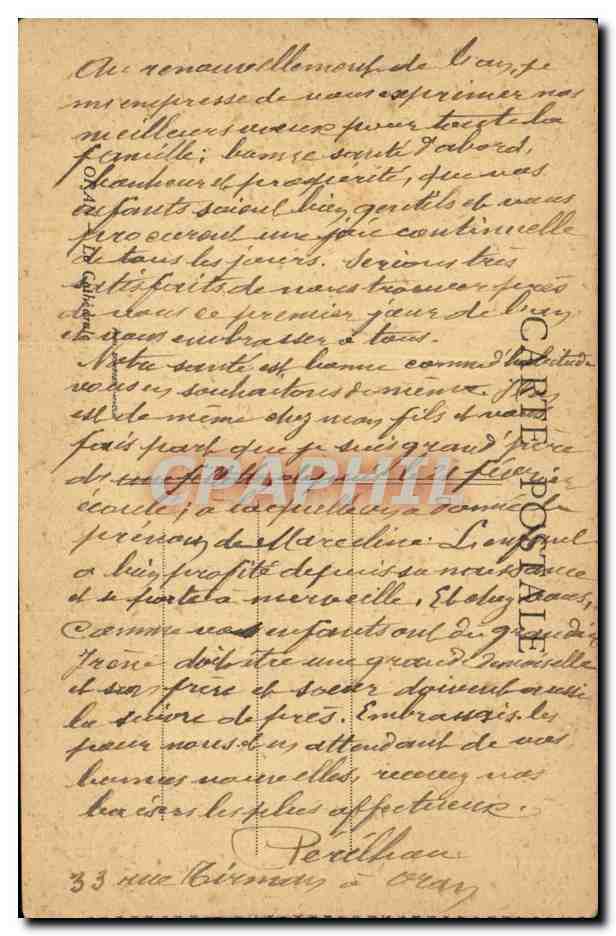 Au renouvellement de l'an, je
m'empresse de vous exprimer nos
meilleurs voeux pour toute la
famille; bonne santé d'abord,
bonheur et prospérité, que vos
enfants soient bien gentils et vous
procurent une joie continuelle
de tous les jours. Serions très
satisfaits de nous trouver près
de vous ce premier jour de l'an
et vous embrasser à tous.
Notre santé est bonne comme d'habitude
vous en souhaitons de même.
est de même chez mon fils et vous
fais part que je suis grand'père
février
écoulé, à laquelle on a donné le
prénom de Marceline. L'enfant
a bien profité depuis sa naissance
et se porte à merveille. Et chez vous,
comme vos enfants ont dû grandir
Irène doit être une grande demoiselle
et son frère et soeur doivent aussi
la suivre de près. Embrassez-les
pour nous et en attendant de vos
bonnes nouvelles, recevez nos
baisers les plus affectueux.
33 rue à Oran
CARTE POSTALE
ORAN - La Cathédrale
CPAPHIL